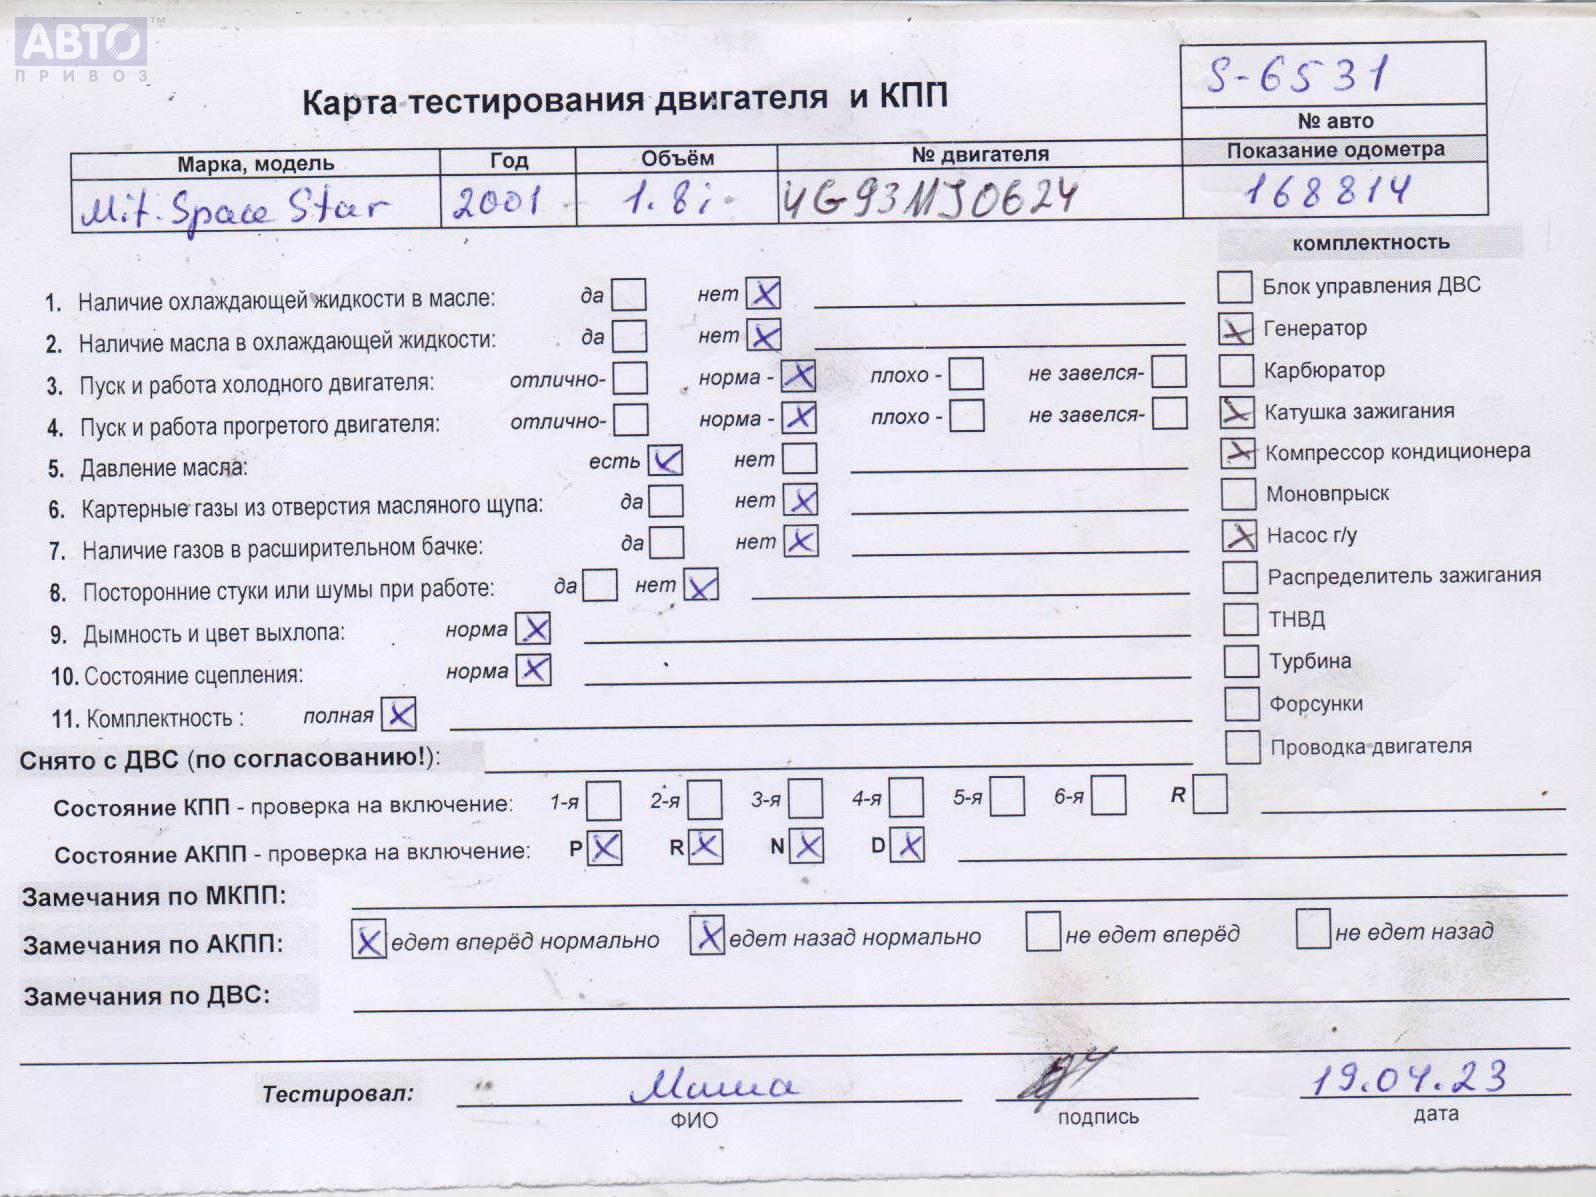 АВТО™
ПРИВОЗ
Карта тестирования двигателя и КПП
S-6531
№ авто
Марка, модель Год Объём № двигателя Показание одометра
Mit. Space Star 2001 1.8i 4G93MJ0624 168814
комплектность
1. Наличие охлаждающей жидкости в масле: да нет X
Блок управления ДВС
2. Наличие масла в охлаждающей жидкости: да нет X
X Генератор
3. Пуск и работа холодного двигателя: отлично- норма - X плохо - не завелся-
Карбюратор
4. Пуск и работа прогретого двигателя: отлично- норма - X плохо - не завелся-
X Катушка зажигания
5. Давление масла: есть X нет
X Компрессор кондиционера
6. Картерные газы из отверстия масляного щупа: да нет X
Моновпрыск
7. Наличие газов в расширительном бачке: да нет X
X Насос г/у
8. Посторонние стуки или шумы при работе: да нет X
Распределитель зажигания
9. Дымность и цвет выхлопа: норма X
ТНВД
10. Состояние сцепления: норма X
Турбина
11. Комплектность : полная X
Форсунки
Снято с ДВС (по согласованию!):
Проводка двигателя
Состояние КПП - проверка на включение: 1-я 2-я 3-я 4-я 5-я 6-я R
Состояние АКПП - проверка на включение: P X R X N X D X
Замечания по МКПП:
Замечания по АКПП: X едет вперёд нормально X едет назад нормально не едет вперёд не едет назад
Замечания по ДВС:
Тестировал: Миша 19.04.23
ФИО подпись дата